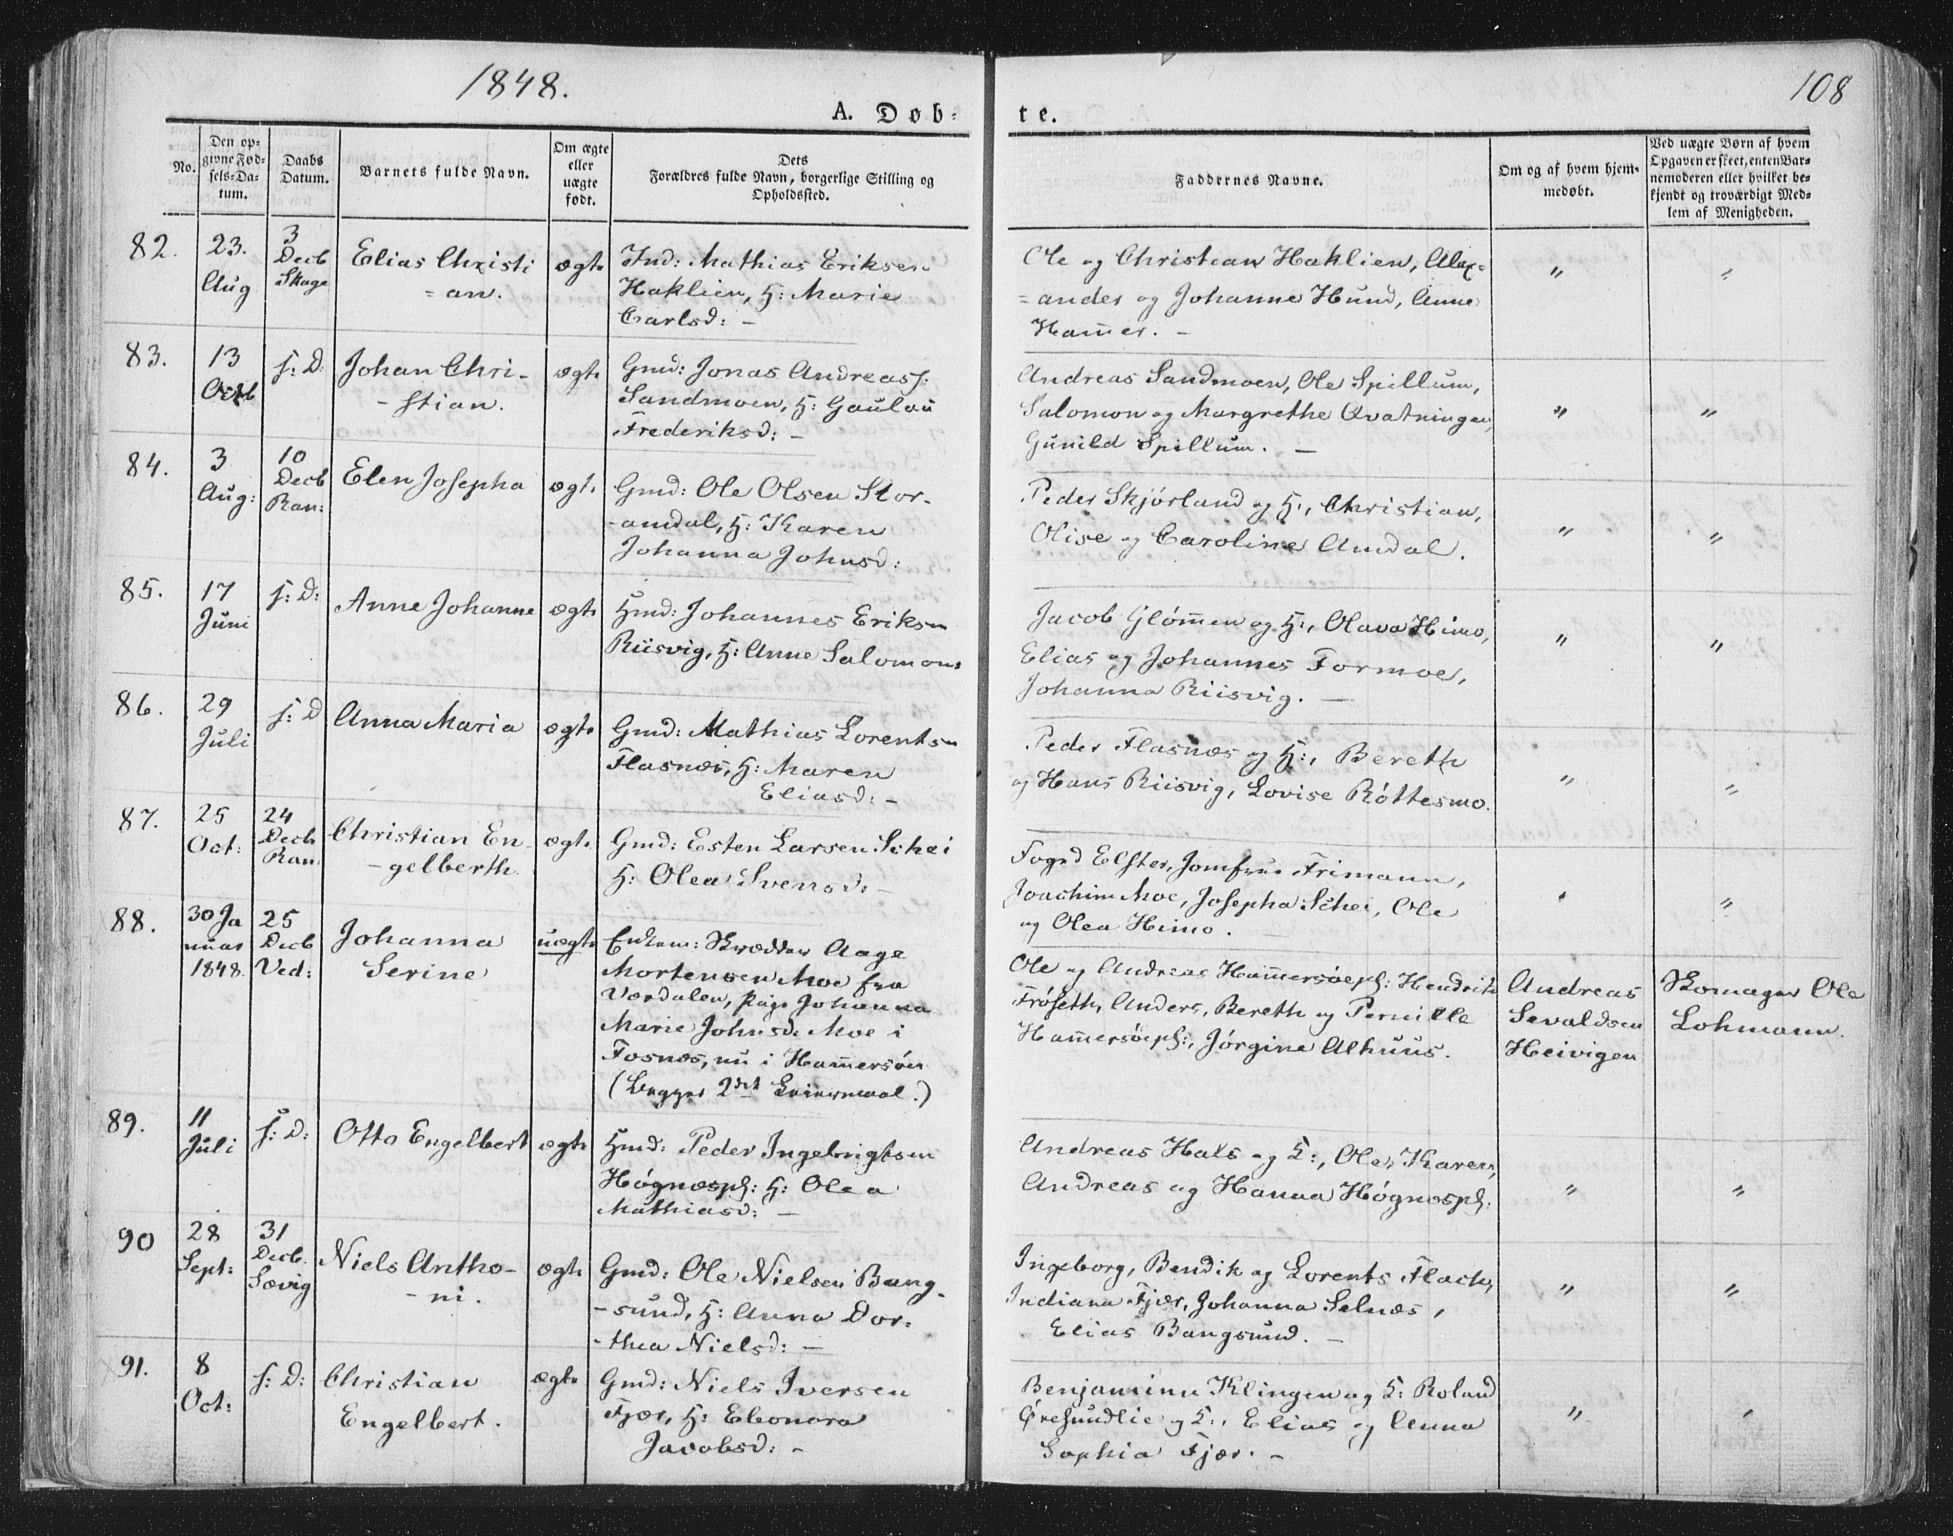 1848.
108
A. Døb-
te.
No.
Den op-
givne Fød-
sels-Da-
tum.
Daabs
Datum.
Barnets fulde Navn.
Om ægte
eller
uægte
født.
Dets
Forældres fulde Navn, borgerlige Stilling og
Opholdssted.
Faddernes Navne.
Om og af hvem hjem-
medøbt.
Ved uægte Børn af hvem
Opgaven er skeet, enten Bar-
nemoderen eller hvilket be-
kjendt og troværdigt Med-
lem af Menigheden.
82.
23.
Aug
3
Decb
Skage
Elias Christi
=an.
ægte
Ind: Mathias Eriksen
Haklien, H: Marie
Carlsd: -
Ole og Christian Haklien, Alex-
=ander og Johanne Hund, Anne
Ham̄er. -
"
"
83.
13
Octb
s: D:
Johan Chri-
-stian.
ægte
Gmd: Jonas Andreass:
Sandmoen, H: Gaulau
Frederiksd: -
Andreas Sandmoen, Ole Spillum,
Salomon og Margrethe Qvatningen,
Gunild Spillum. -
"
"
84.
3
Aug:
10
Decb
Ran:
Elen Josepha
ægt.
Gmd: Ole Olsen Stor-
-amdal, H: Karen
Johanna Johnsd:
Peder Skjørland og H:, Christian,
Olise og Caroline Amdal.
"
"
85.
17
Juni
s: D:
Anne Johanne
ægte
Hmd: Johannes Eriksen
Riisvig, H: Anne Salomons
Jacob Gløm̄en og H:, Olava Himo,
Elias og Johannes Formoe,
Johanna Riisvig. -
"
"
86.
29
Juli
s: D
Anna Maria
ægte
Gmd: Mathias Lorentsen
Flasnæs, H: Maren
Eliasd: -
Peder Flasnæs og H:, Bereth
og Hans Riisvig, Lovise Røttesmo.
"
"
87.
25
Oct:
24
Decb
Ran:
Christian En-
-gelberth
ægte
Gmd: Esten Larsen Schei
H: Olea Svensd: -
Fogd Elster, Jomfrue Frimann,
Joachim Moe, Josepha Schei, Ole
og Olea Himo.
"
"
88.
30 Ja
nuar
1848.
25
Decb
Ved:
Johanna
Serine
uægte
Enkem: Skrædder Aage
Mortensen Moe fra
Værdalen, Pige Johanna
Marie Johnsd: Moe i
Fosnæs, nu i Ham̄ersøen
(Begges 2det Leiermaal.)
Ole og Andreas Ham̄ersøepl: Hendrik
Frøseth, Anders, Bereth og Pernille
Ham̄ersøepl:, Jørgine Alhuus.
Andreas
Sevaldsen
Heivigen
Skomager Ole
Lohmann.
89.
11
Juli
s: D:
Otto Engelbert
ægte
Hmd: Peder Ingebrigtsen
Høgnæspl: H: Olea
Mathiasd: -
Andreas Hals og K:, Ole, Karen,
Andreas og Hanna Høgnæspl:
"
"
90
28
Sept:
31
Decb.
Sævig
Niels Antho-
-ni.
ægte
Gmd: Ole Nielsen Bang-
-sund, H: Anna Dor-
-thea Nielsd: -
Ingeborg, Bendik og Lorents Flach,
Indiana Fjær, Johanna Selnæs,
Elias Bangsund. -
"
"
91.
8
Oct:
s: D:
Christian
Engelbert.
ægte
Gmd: Niels Iversen
Fjær, H: Eleonora
Jacobsd: -
Benjaminn Klingen og K: Roland
Øresundlie og K:, Elias og Anna
Sophia Fjær. -
"
"